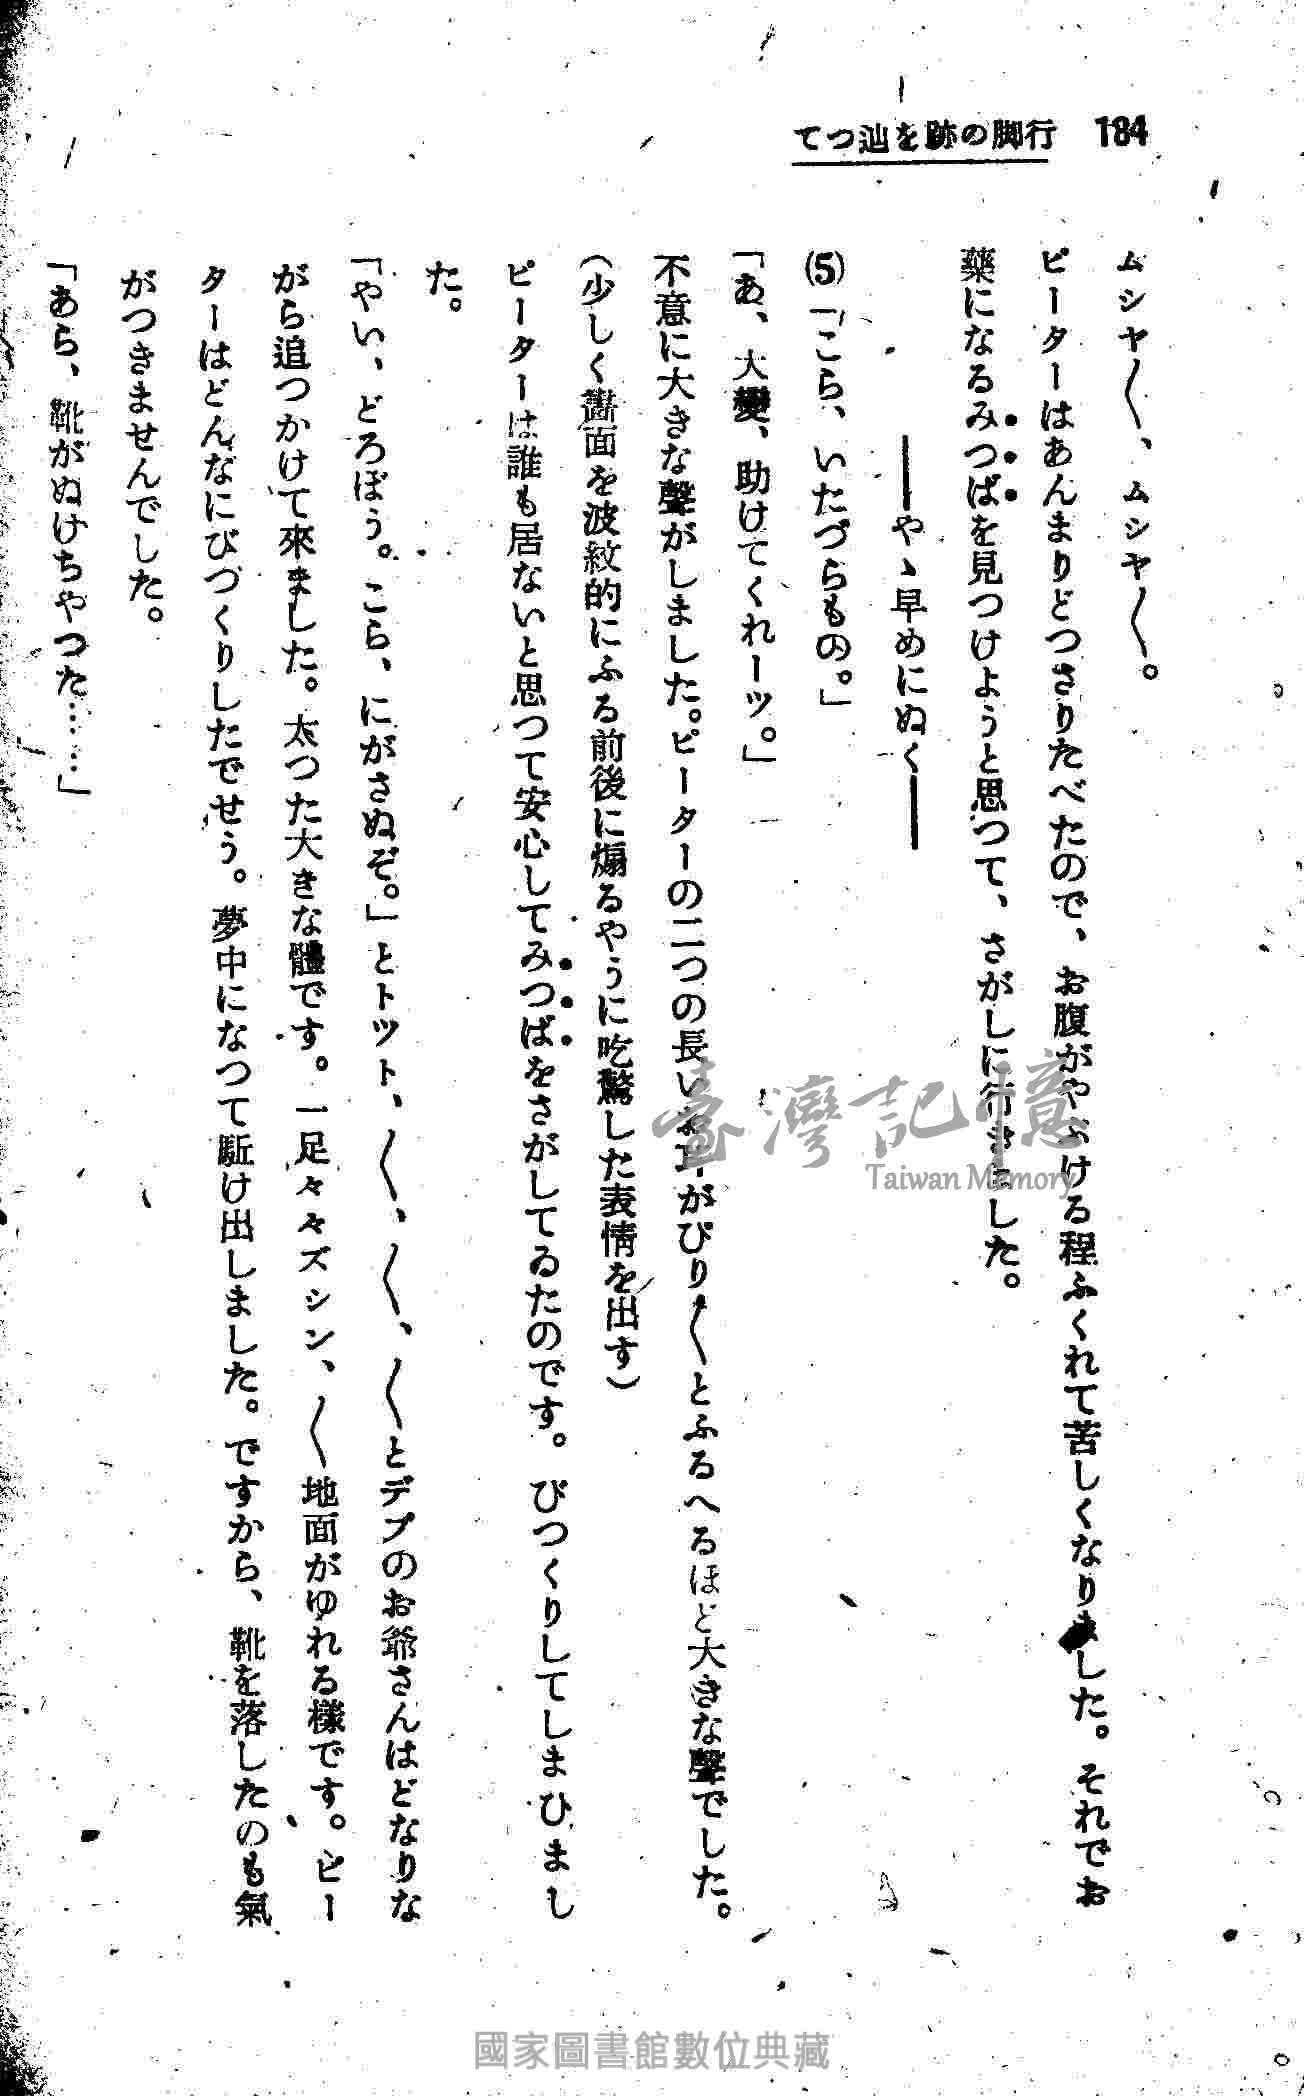 184 行脚の跡を辿つて
ムシヤ〱、ムシヤ〱。
ピーターはあんまりどつさりたべたので、お腹がやぶける程ふくれて苦しくなりました。それでお
薬になるみつばを見つけようと思つて、さがしに行きました。
――やゝ早めにぬく――
(5)「こら、いたづらもの。」
「あ、大變、助けてくれーツ。」
不意に大きな聲がしました。ピーターの二つの長いお耳がぴり〱とふるへるほど大きな聲でした。
(少しく畵面を波紋的にふる前後に煽るやうに吃驚した表情を出す)
ピーターは誰も居ないと思つて安心してみつばをさがしてゐたのです。びつくりしてしまひまし
た。
「やい、どろぼう。こら、にがさぬぞ。」とトツト、〱、〱、〱とデブのお爺さんはどなりな
がら追つかけて來ました。太つた大きな體です。一足々々ズシン、〱地面がゆれる樣です。ピー
ターはどんなにびつくりしたでせう。夢中になつて駈け出しました。ですから、靴を落したのも氣
がつきませんでした。
「あら、靴がぬけちやつた……」
臺灣記憶
Taiwan Memory
國家圖書館數位典藏